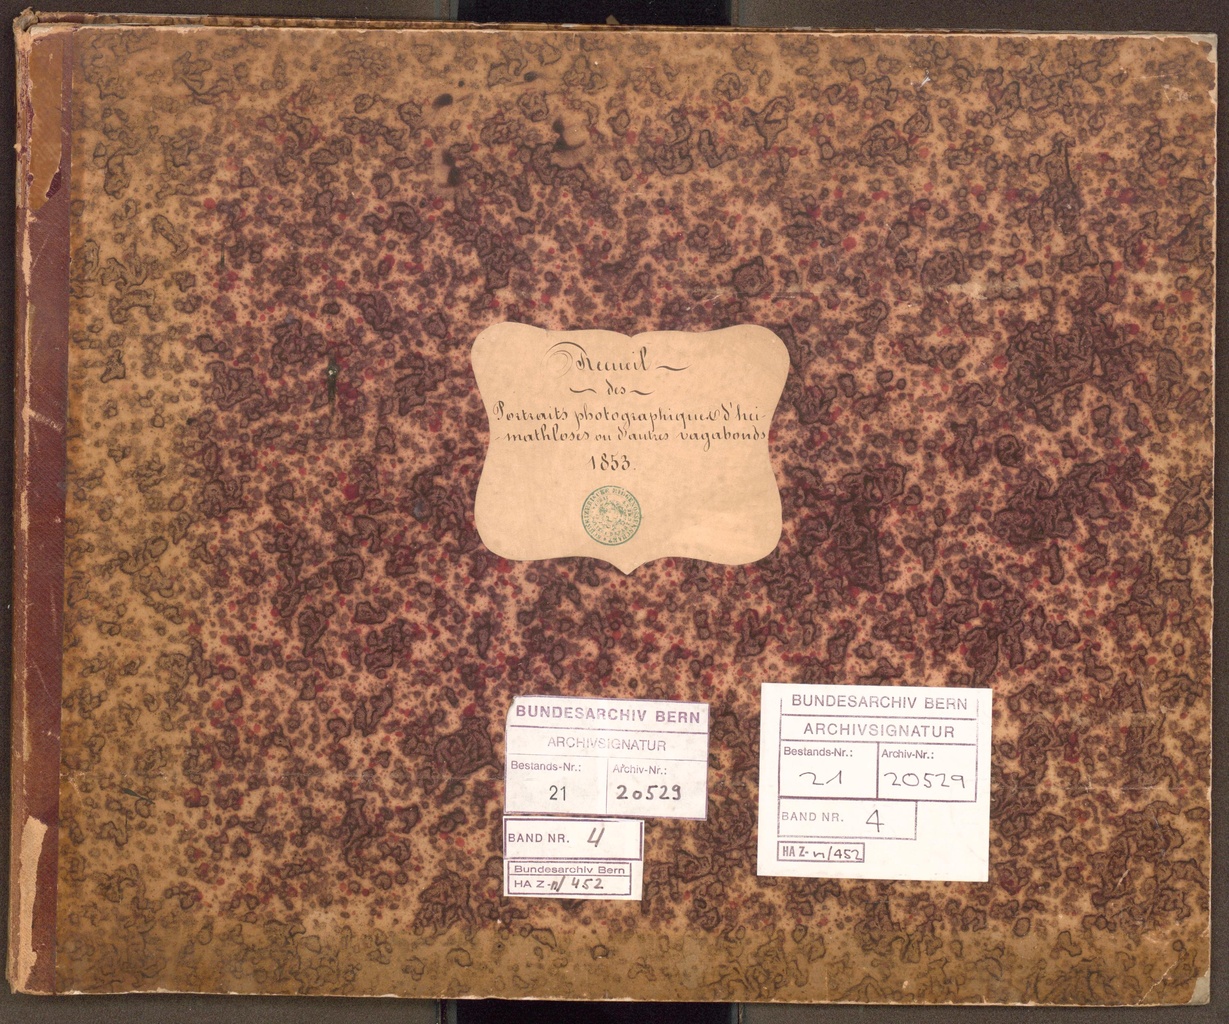 Recueil
des
Portraits photographiques d'hei-
mathloses ou d'autres vagabonds
1853.
BUNDESARCHIV BERN
ARCHIVSIGNATUR
Bestands-Nr.: Archiv-Nr.:
21 20529
BAND NR. 4
Bundesarchiv Bern
HA Z-n/452
BUNDESARCHIV BERN
ARCHIVSIGNATUR
Bestands-Nr.: Archiv-Nr.:
21 20529
BAND NR. 4
HA Z-n/452